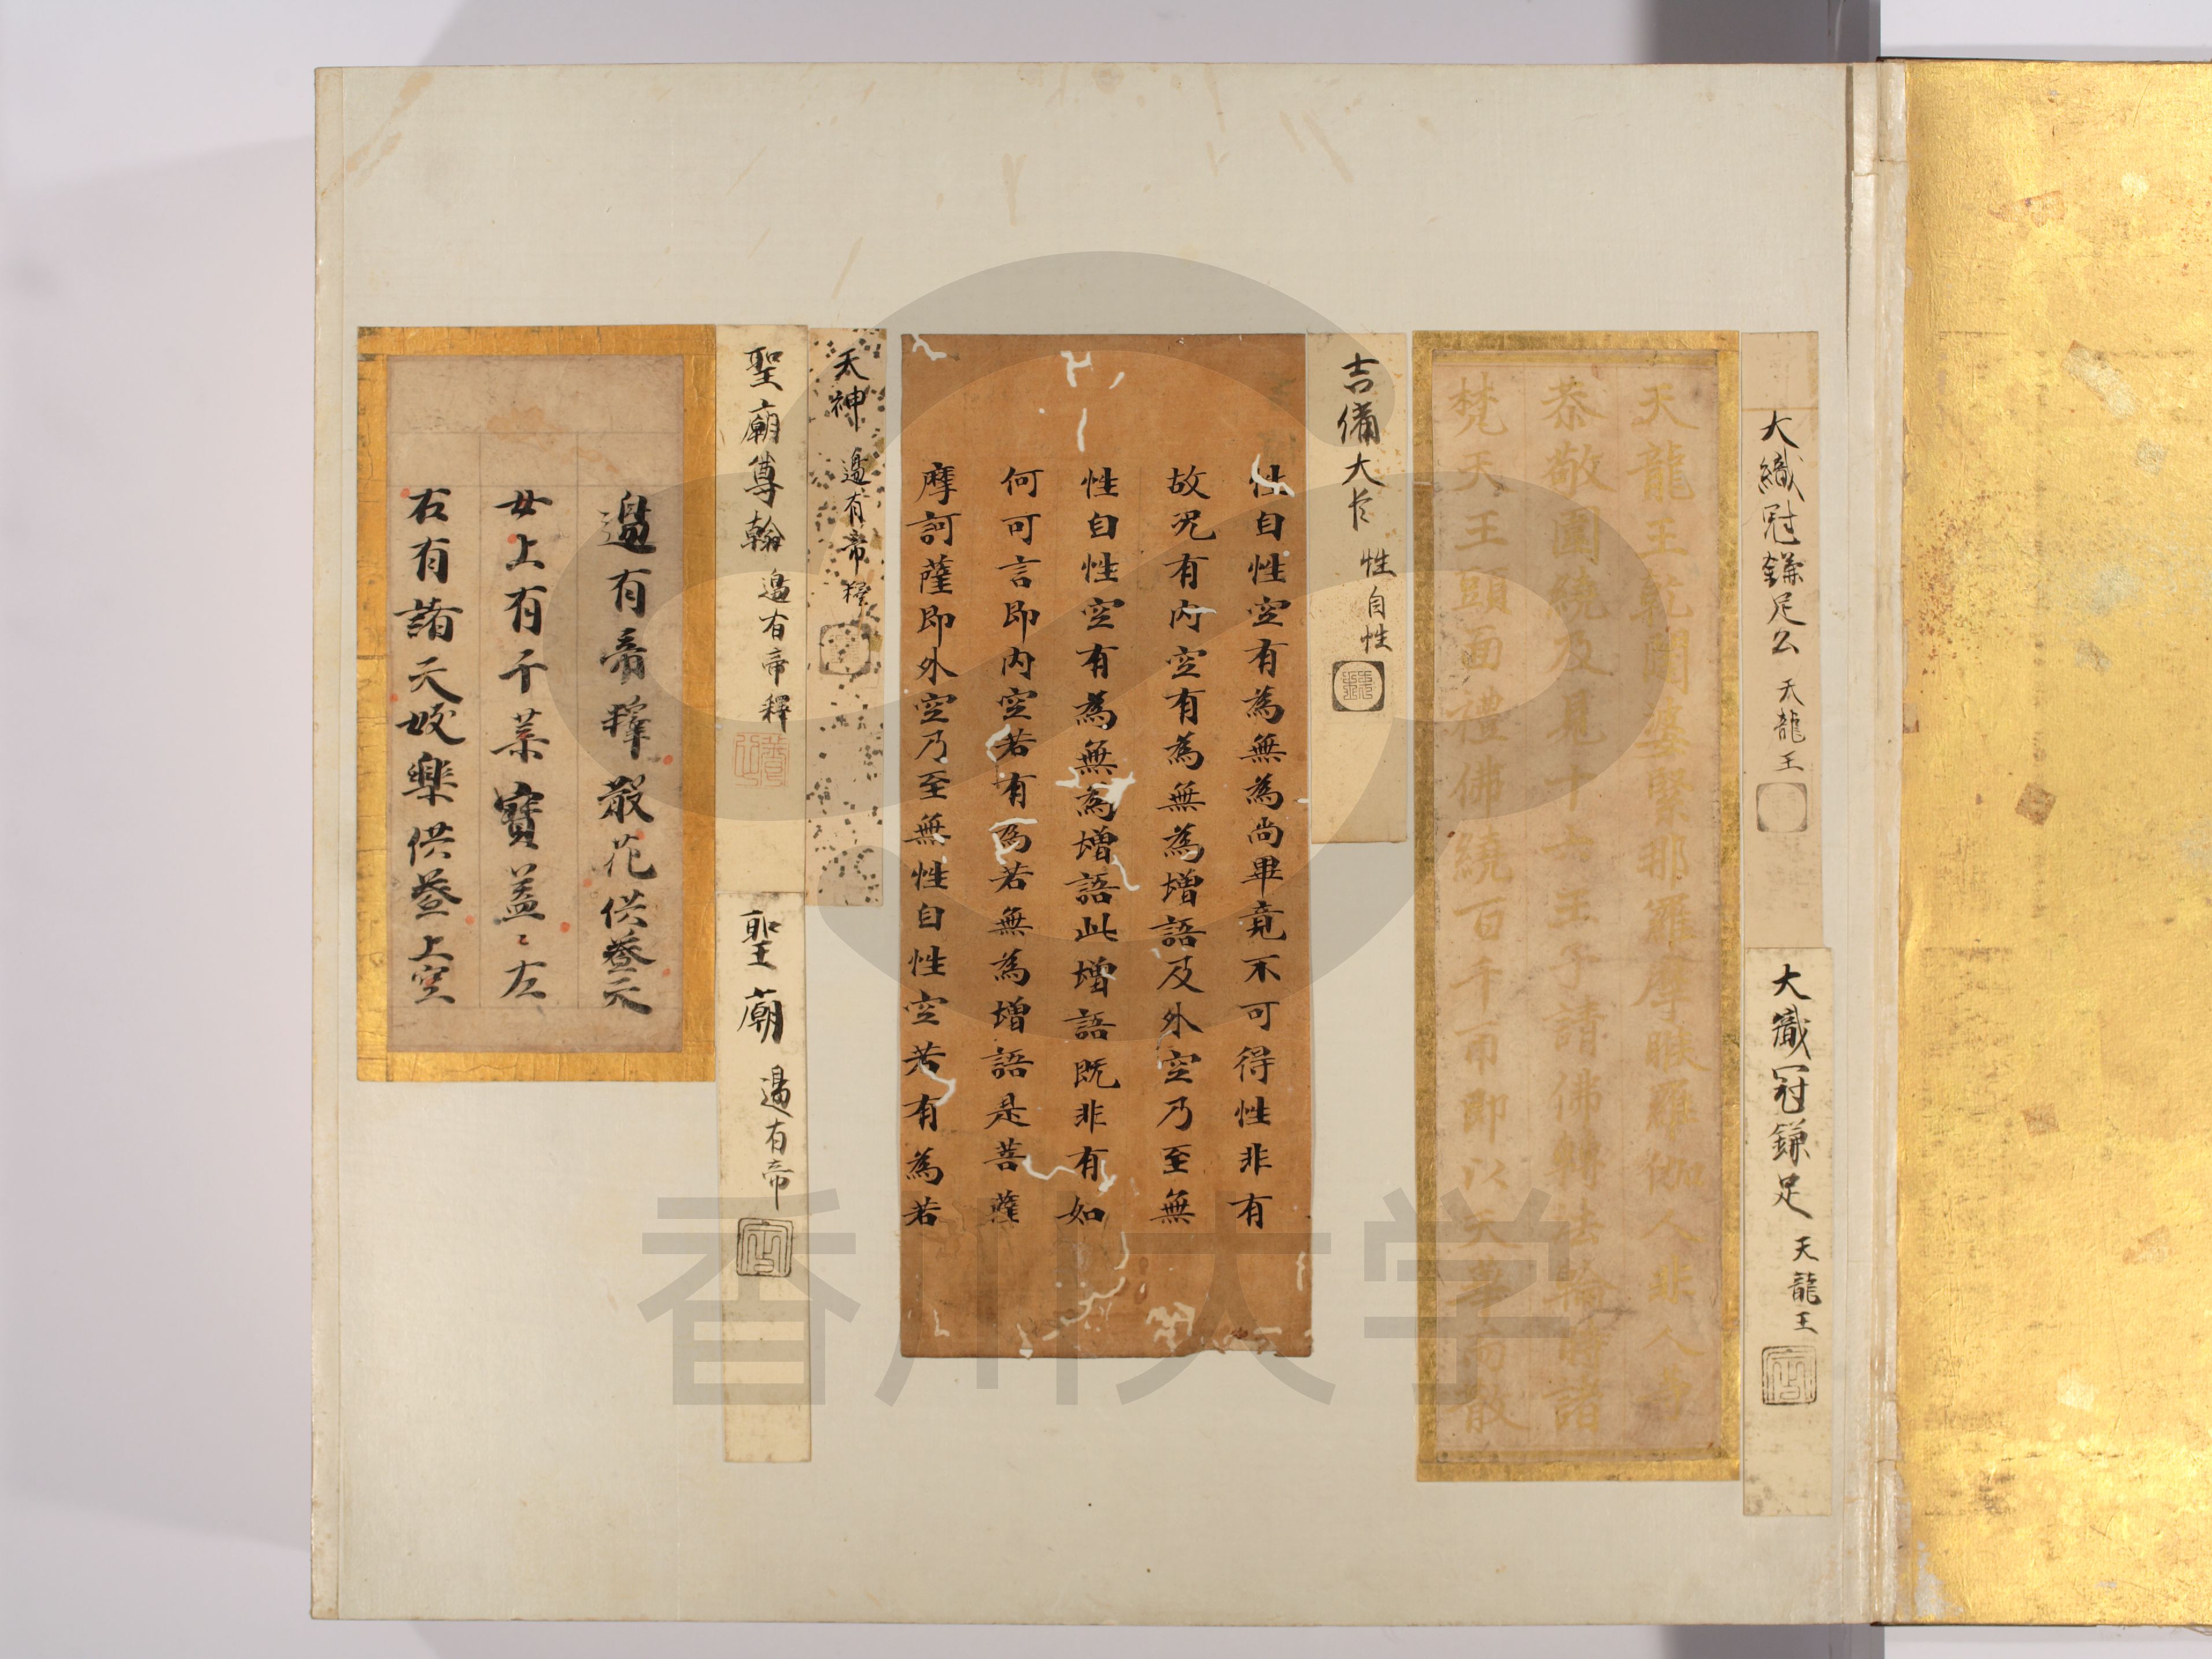 大織冠鎌足公 天龍王
大織冠鎌足 天龍王
天龍王乾闥婆緊那羅摩睺羅伽人非人等
恭敬圍繞及見十六王子請佛轉法輪時諸
梵天王頭面禮佛繞百千帀即以天華而散
吉備大臣 性自性
性自性空有為無為尚畢竟不可得性非有
故况有内空有為無為増語及外空乃至無
性自性空有為無為増語此増語既非有如
何可言即内空若有為若無為増語是菩薩
摩訶薩即外空乃至無性自性空若有為若
天神 邊有帝釋
聖廟尊翰 邊有帝釋
聖廟 邊有帝
邊有帝釋散花供養天
女上有千葉寳盖〻左
右有諸天妓樂供養上空
香川大学